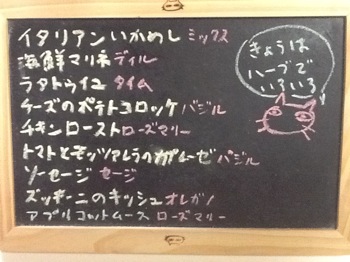 イタリアンいかめし ミックス
海鮮マリネ ディル
ラタトゥイユ タイム
チーズのポテトコロッケ バジル
チキンロースト ローズマリー
トマトとモッツァレラのガルーゼ バジル
ソーセージ セージ
ズッキーニのキッシュ オレガノ
アプリコットムース ローズマリー
きょうは
ハーブで
いろいろ